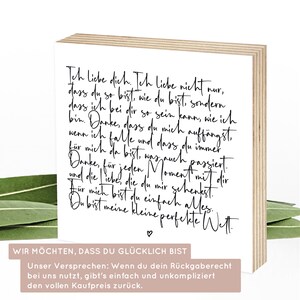 Ich liebe dich. Ich liebe nicht nur,
dass du so bist, wie du bist, sondern
dass ich bei dir so sein kann, wie ich
bin. Danke, dass du mich auffängst
wenn ich falle und dass du immer
für mich da bist, was auch passiert.
Danke, für jeden Moment mit dir
und die Liebe, die du mir schenkst.
Für mich bist du einfach alles.
Du bist meine kleine perfekte Welt.
WIR MÖCHTEN, DASS DU GLÜCKLICH BIST
Unser Versprechen: Wenn du dein Rückgaberecht
bei uns nutzt, gibt's einfach und unkompliziert
den vollen Kaufpreis zurück.